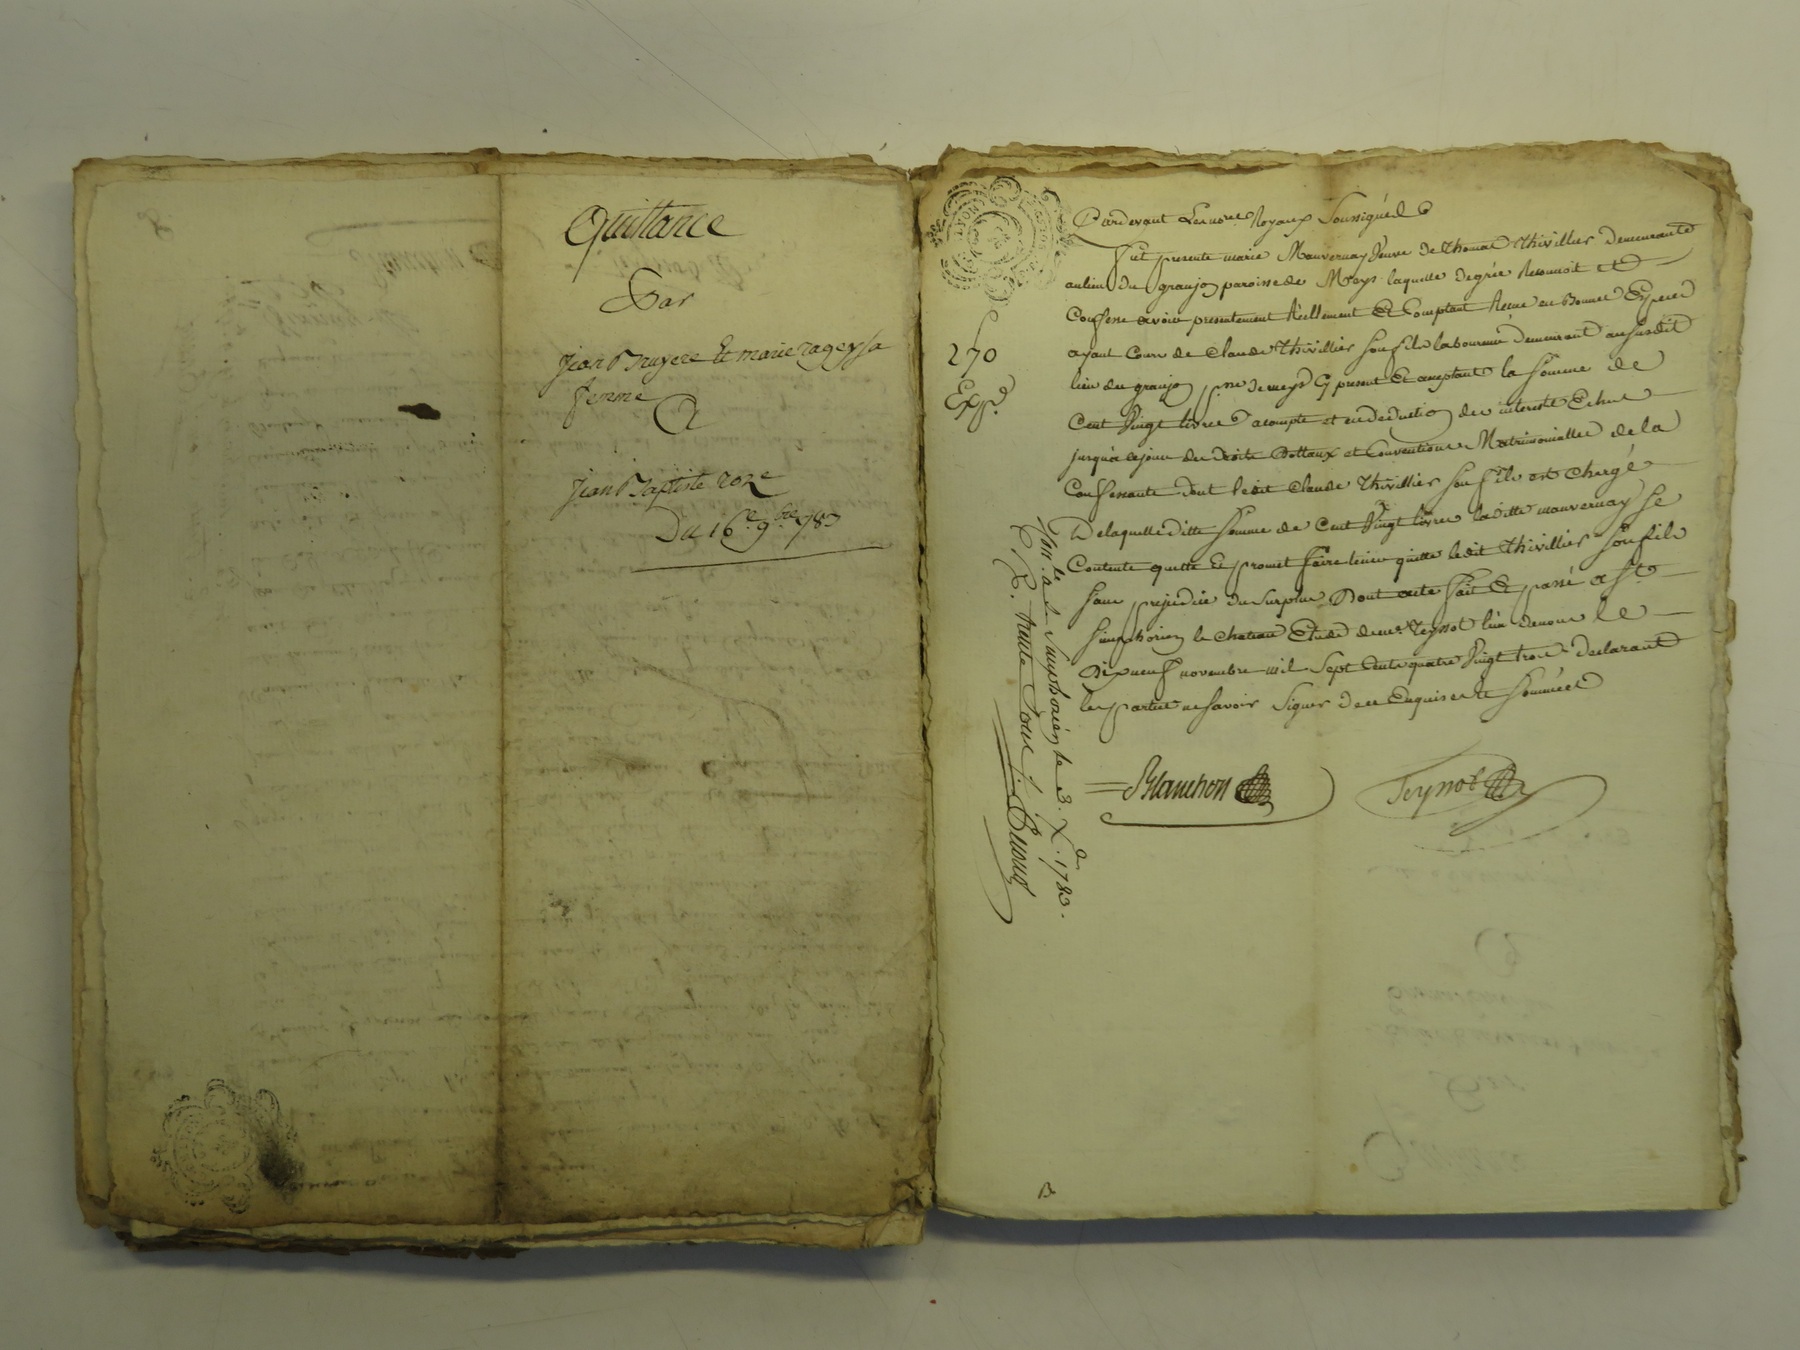 Quittance
Par
Jean Bruyere Et marie rageys sa
femme
A
Jean Baptiste roze
Du 16e 9bre 1783
270
Expe
Pardevant Les nores Royaux Soussignés
fut presente marie Mauvernay Veuve de thomas thivillier demeurante
au lieu du granjon paroisse de Meys laquelle de gré a Reconnoit et
Confesse avoir presentement Réellement Et Comptant Recue en Bonnes Especes
ayant Cours de Claude thivillier son fils laboureur demeurant au susdit
lieu du granjon psse de meys Cy present Et acceptant la somme de
Cent Vingt livres acompte et en deduction des interests Echus
jusqu'a ce jour des droits Dottaux et Conventions Matrimonialles de la
Confessante dont ledit Claude thivillier son fils est Chargé
De laquelle ditte somme de Cent Vingt livres laditte mauvernay se
Contente quitte Et promet faire tenir quitte ledit thivillier son fils
sans prejudice du surplus Dont acte fait Et passé a st
simphorien le chateau Etude de me teynot l'un de nous le
Dix neuf novembre mil sept Cents quatre Vingt trois declarant
les parties ne savoir signer de ce Enquises et sommées
Blanchon
Teynot
Con.lé a St. Symphorien le 3. Xe. 1783.
R. trente sous
B